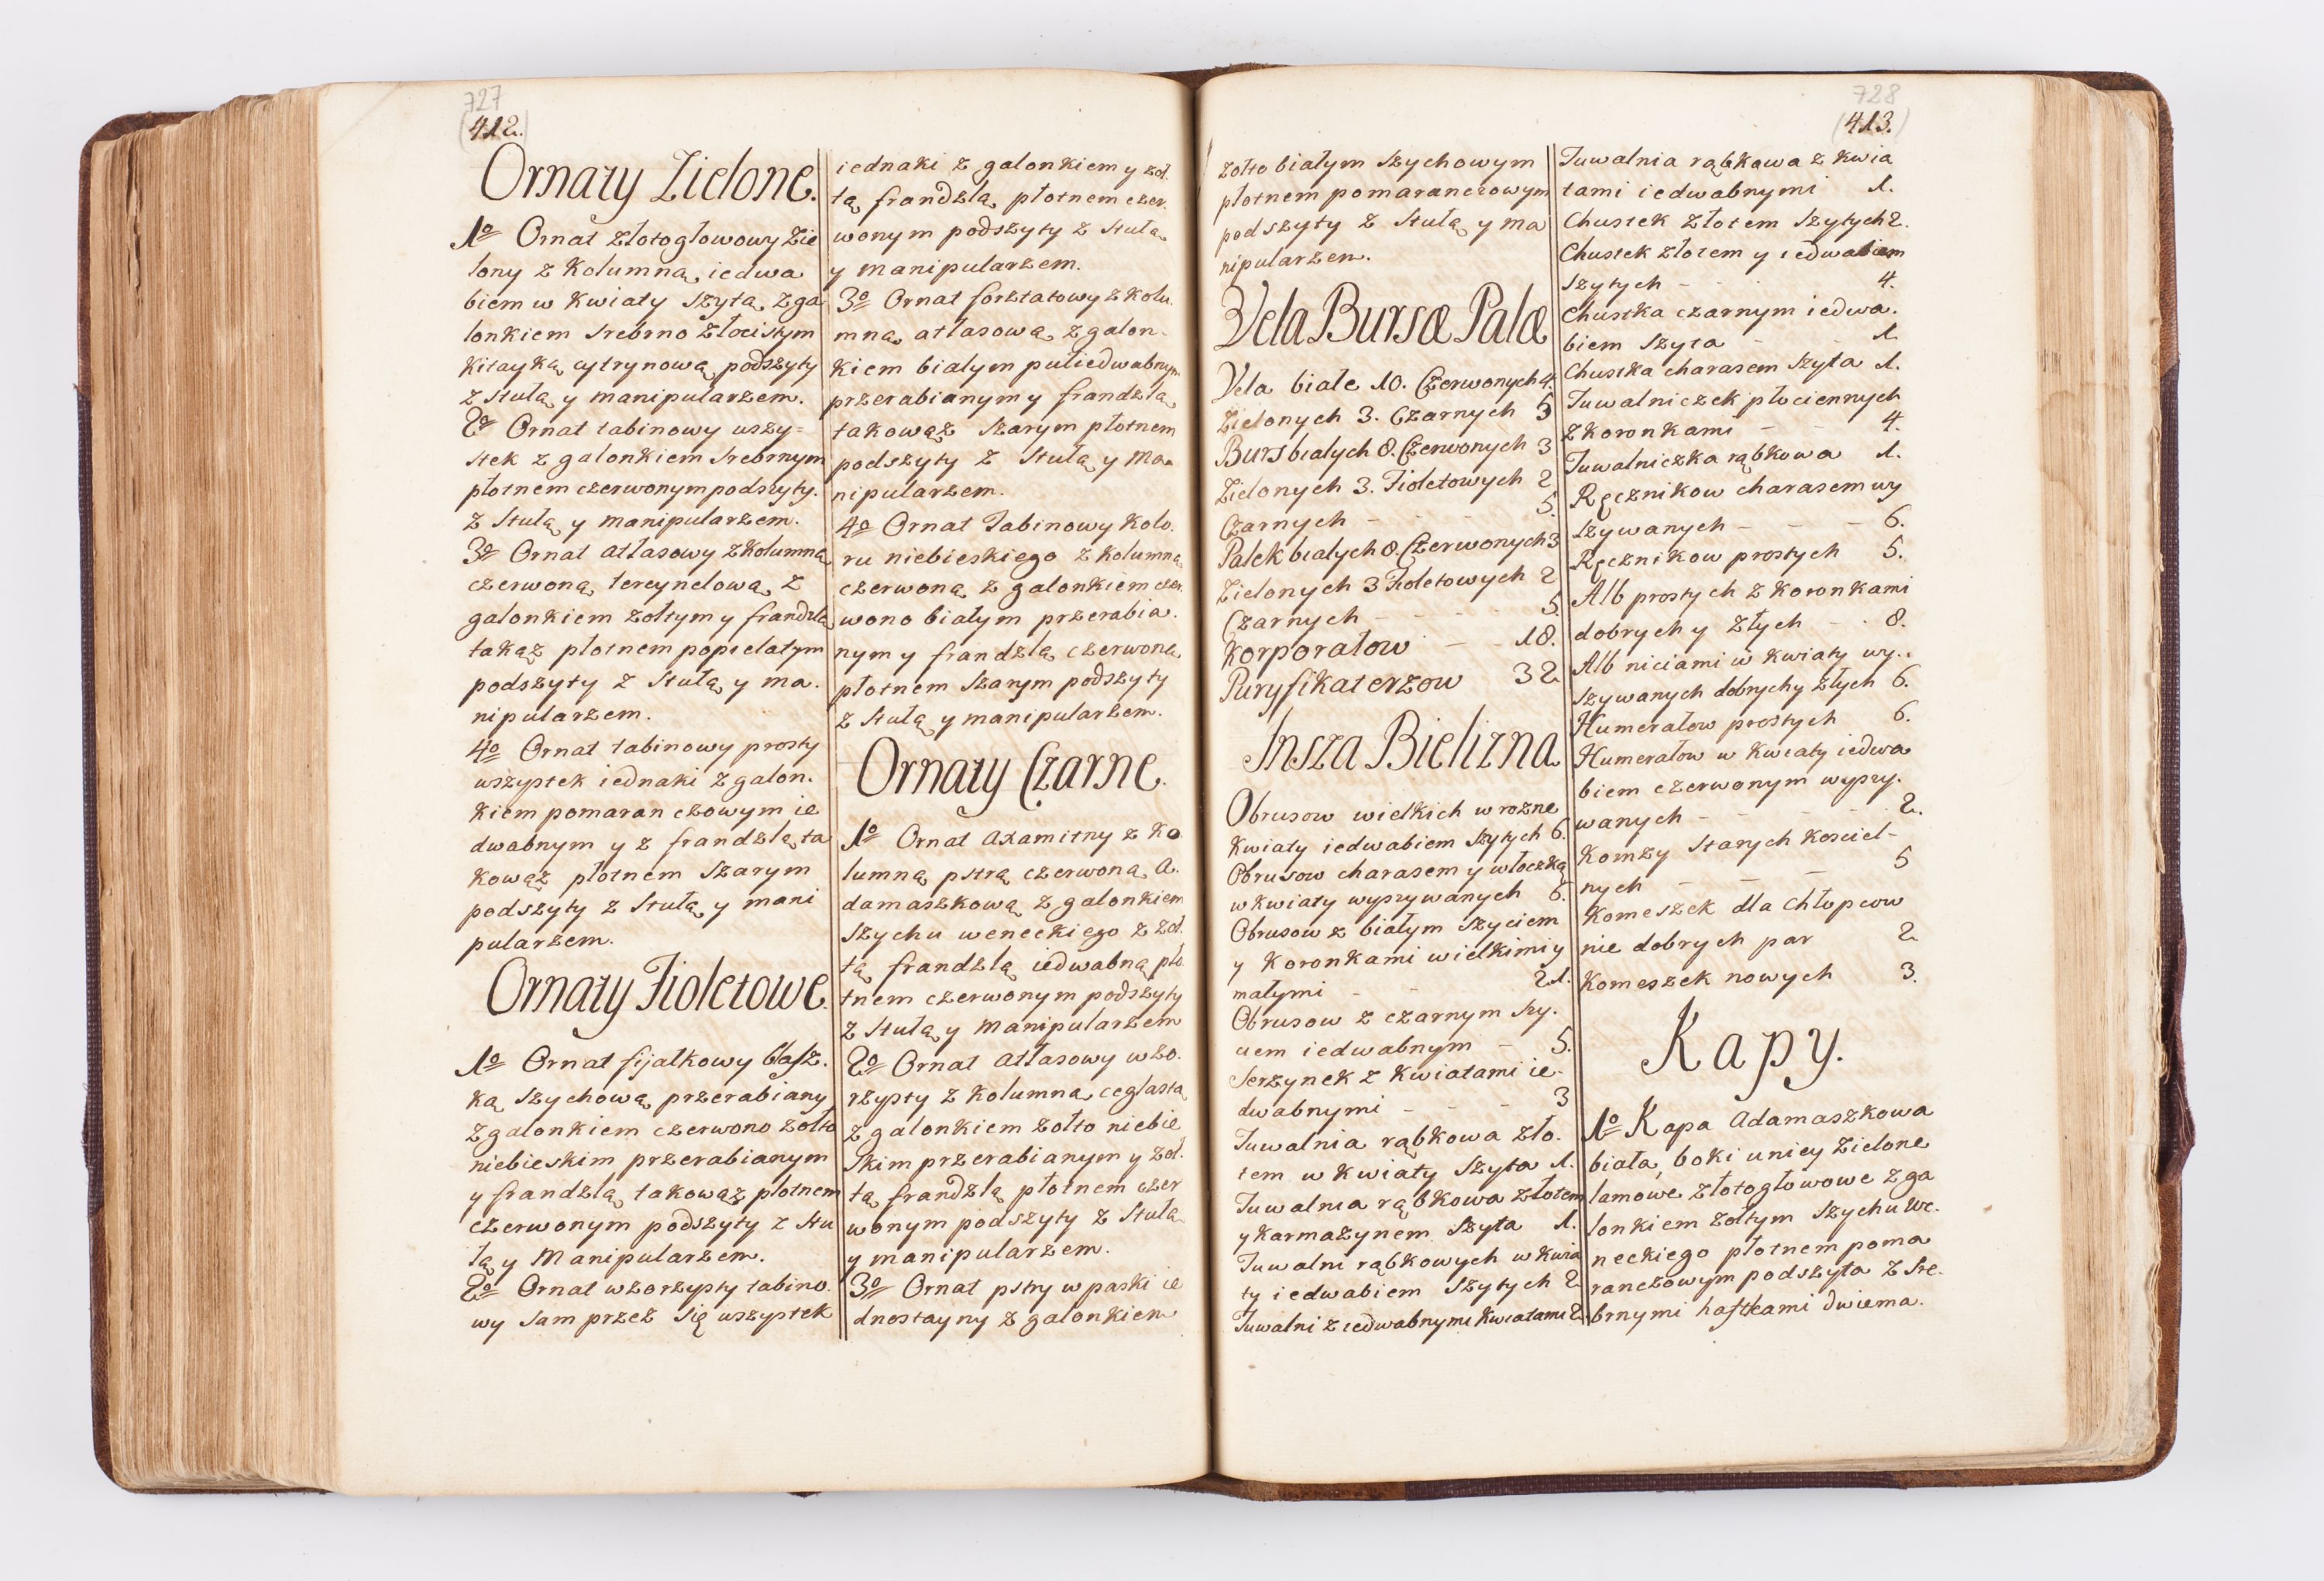 727
(412.)
Ornaty Zielone.
1º Ornat złotogłowowy zie
lony z kolumną iedwa
biem w kwiaty szytą z ga
lonkiem srebrno złocistym
kitayką cytrynową podszyty
z stułą y manipularzem.
2º Ornat tabinowy wszy=
stek z galonkiem srebrnym
płotnem czerwonym podszyty.
z stułą y manipularzem.
3º Ornat atłasowy z kolumną
czerwoną tercynelową z
galonkiem żołtym y frandzlą
takąż płotnem popielatym
podszyty z stułą y ma.
nipularzem.
4º Ornat tabinowy prosty
wszystek iednaki z galon.
kiem pomaranczowym ie
dwabnym y z frandzlą ta
kowąż płotnem szarym
podszyty z stułą y mani
pularzem.
Ornaty Fioletowe
1º Ornat fijałkowy blasz.
ką szychową przerabiany
z galonkiem czerwono żołto
niebieskim przerabianym
y frandzlą takowąż płotnem
czerwonym podszyty z stu
łą y Manipularzem.
2º Ornat wzorzysty tabino.
wy sam przez się wszystek
iednaki z galonkiem y żoł.
tą frandzlą płotnem czer.
wonym podszyty z stułą
y manipularzem.
3º Ornat forsztatowy z kolu.
mną atłasową z galon-
kiem białym puliedwabnym
przerabianym y frandzlą
takowąż szarym płotnem
podszyty z stułą y ma-
nipularzem.
4º Ornat Tabinowy kolo.
ru niebieskiego z kolumną
czerwoną z galonkiem czer.
wono białym przerabia.
nym y frandzlą czerwoną
płotnem szarym podszyty
z stułą y manipularzem.
Ornaty Czarne.
1º Ornat axamitny z ko
lumną pstrą czerwoną a.
damaszkową z galonkiem
szychu weneckiego z żoł.
tą frandzlą iedwabną pło
tnem czerwonym podszyty
z stułą y manipularzem
2º Ornat atłasowy wzo.
rzysty z kolumną ceglastą
z galonkiem żołto niebie
skim przerabianym y żoł.
tą frandzlą płotnem czer
wonym podszyty z stułą
y manipularzem.
3º Ornat pstry w paski ie
dnostayny z galonkiem
728
(413.)
żołto białym szychowym
płotnem pomaranczowym
podszyty z stułą y ma
nipularzem.
Vela Bursæ Palæ
Vela białe 10. Czerwonych 4.
Zielonych 3. Czarnych 5
Burs białych 8. Czerwonych 3
Zielonych 3. Fioletowych 2
Czarnych - - - 5.
Palek białych 8. Czerwonych 3
Zielonych 3 Fioletowych 2
Czarnych - - - 5.
Korporałow - 18.
Puryfikaterzow 32
Insza Bielizna
Obrusow wielkich w rozne
kwiaty iedwabiem szytych 6.
Obrusow charasem y włoczką
w kwiaty wyszywanych 6.
Obrusow z białym szyciem
y koronkami wielkimi y
małymi - - 21.
Obrusow z czarnym szy.
ciem iedwabnym - 5.
Serzynek z kwiatami ie-
dwabnymi - - - 3
Tuwalnia rąbkowa zło.
tem w kwiaty szyta 1.
Tuwalnia rąbkowa złotem
y karmazynem szyta 1.
Tuwalni rąbkowych w kwia
ty iedwabiem szytych 2
Tuwalni z iedwabnymi kwiatami 2
Tuwalnia rąbkowa z kwia
tami iedwabnymi 1.
Chustek złotem szytych 2.
Chustek złotem y iedwabiem
szytych - - - 4.
Chustka czarnym iedwa.
biem szyta - - 1.
Chustka charasem szyta 1.
Tuwalniczek płociennych
z koronkami - - 4.
Tuwalniczka rąbkowa 1.
Ręcznikow charasem wy
szywanych - - - 6.
Ręcznikow prostych 5.
Alb prostych z koronkami
dobrych y złych - . 8.
Alb niciami w kwiaty wy..
szywanych dobrych y złych 6.
Humerałow prostych 6.
Humerałow w kwiaty iedwa
biem czerwonym wyszy.
wanych - - - - 2.
Komzy starych kosciel-
nych - - - 5
Komeszek dla chłopcow
nie dobrych par 2
Komeszek nowych 3.
Kapy.
1º Kapa Adamaszkowa
biała, boki u niey zielone
lamowe złotogłowowe z ga
lonkiem żołtym szychu We.
neckiego płotnem poma
ranczowym podszyta z sre.
brnymi haftkami dwiema.